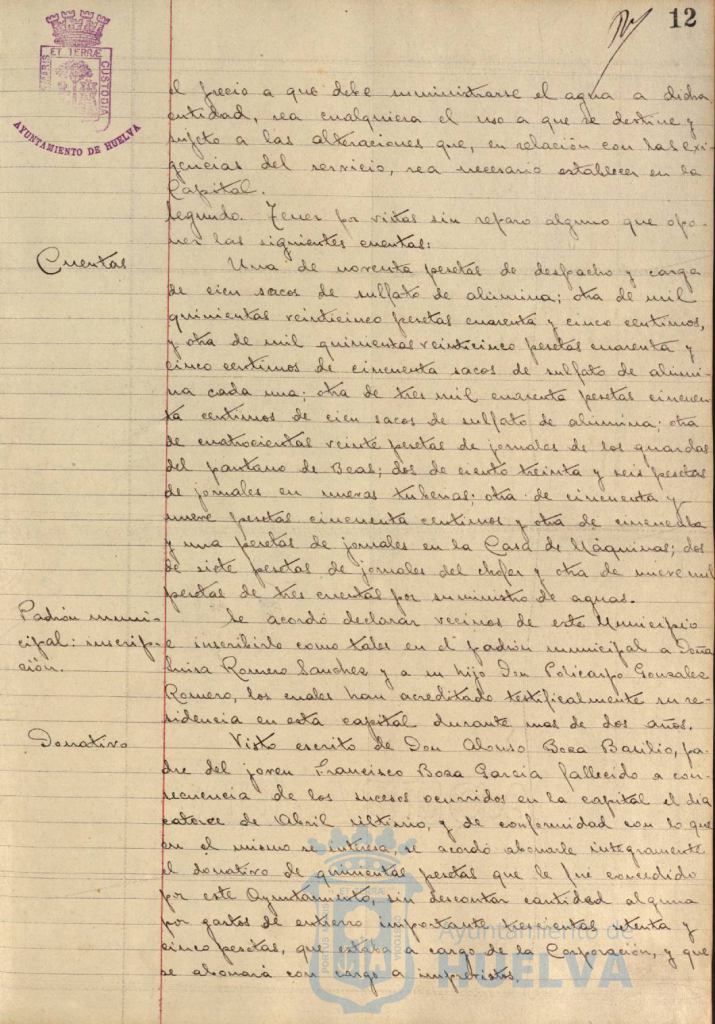 12
PORTUS MARIS ET TERRÆ CUSTODIA
AYUNTAMIENTO DE HUELVA
el precio a que debe suministrarse el agua a dicha
entidad, sea cualquiera el uso a que se destine y
sujeto a las alteraciones que, en relación con las exi-
gencias del servicio, sea necesario establecer en la
Capital.
Segundo. Tener por vistas sin reparo alguno que opo-
ner las siguientes cuentas:
Cuentas
Una de noventa pesetas de despacho y carga
de cien sacos de sulfato de alumina; otra de mil
quinientas veinticinco pesetas cuarenta y cinco centimos,
y otra de mil quinientas veinticinco pesetas cuarenta y
cinco centimos de cincuenta sacos de sulfato de alumi-
na cada una; otra de tres mil cuarenta pesetas cincuen-
ta centimos de cien sacos de sulfato de alumina; otra
de cuatrocientas veinte pesetas de jornales de los guardas
del pantano de Beas; dos de ciento treinta y seis pesetas
de jornales en nuevas tuberias; otra de cincuenta y
nueve pesetas cincuenta centimos y otra de cincuenta
y una pesetas de jornales en la Casa de Máquinas; dos
de siete pesetas de jornales del chofer y otra de nueve mil
pesetas de tres cuentas por suministro de aguas.
Padrón muni-
cipal: inscrip-
ción.
Se acordó declarar vecinos de este Municipio
e inscribirlo como tales en el padrón municipal a Doña
Luisa Romero Sanchez y a su hijo Don Policarpo Gonzalez
Romero, los cuales han acreditado testificalmente su re-
sidencia en esta capital durante mas de dos años.
Donativo
Visto escrito de Don Alonso Boza Basilio, pa-
dre del joven Francisco Boza Garcia fallecido a con-
secuencia de los sucesos ocurridos en la capital el dia
catorce de Abril ultimo, y de conformidad con lo que
en el mismo se interesa, se acordó abonarle integramente
el donativo de quinientas pesetas que le fue concedido
por este Ayuntamiento, sin descontar cantidad alguna
por gastos de entierro importante trescientas setenta y
cinco pesetas, que estaba a cargo de la Corporación, y que
se abonará con cargo a imprevistos.
Ayuntamiento de
HUELVA